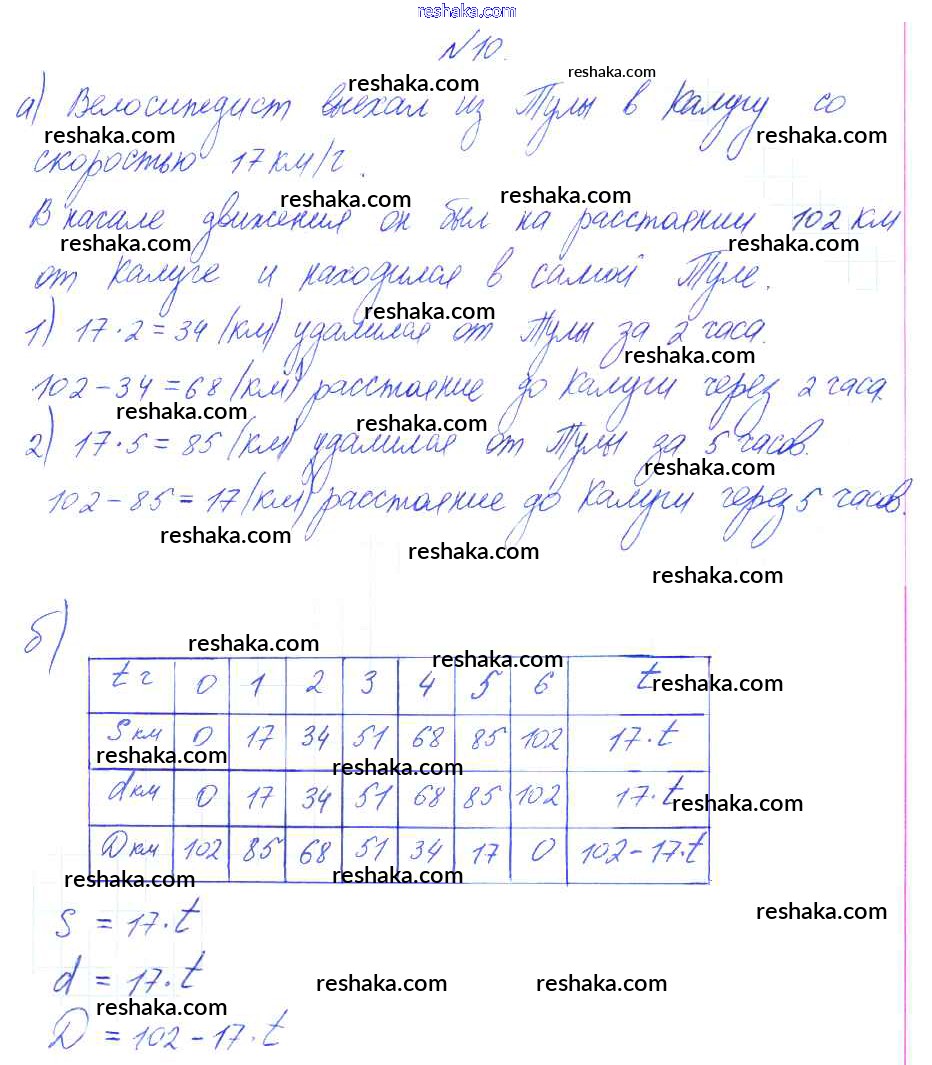 reshaka.com
№10.
reshaka.com reshaka.com
а) Велосипедист выехал из Тулы в Калугу со
reshaka.com reshaka.com
скоростью 17 км/ч.
reshaka.com reshaka.com
В начале движения он был на расстоянии 102 км
reshaka.com reshaka.com
от Калуге и находился в самой Туле.
reshaka.com
1) 17·2=34 (км) удалился от Тулы за 2 часа.
reshaka.com
102-34=68 (км) расстояние до Калуги через 2 часа.
reshaka.com reshaka.com
2) 17·5=85 (км) удалился от Тулы за 5 часов.
reshaka.com
102-85=17 (км) расстояние до Калуги через 5 часов.
reshaka.com reshaka.com
reshaka.com
б)
reshaka.com reshaka.com
t ч 0 1 2 3 4 5 6 t
reshaka.com
S км 0 17 34 51 68 85 102 17·t
reshaka.com reshaka.com
d км 0 17 34 51 68 85 102 17·t
reshaka.com
D км 102 85 68 51 34 17 0 102-17·t
reshaka.com reshaka.com
S = 17·t
reshaka.com
d = 17·t
reshaka.com reshaka.com
reshaka.com
D = 102-17·t